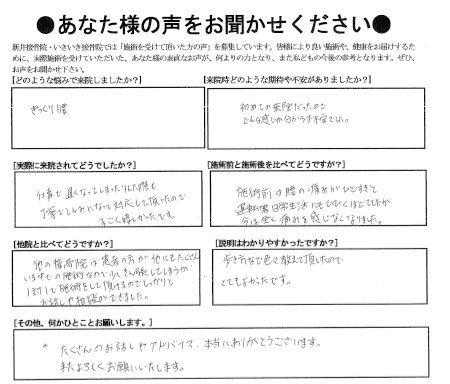 ●あなた様の声をお聞かせください●
新井接骨院・いきいき接骨院では「施術を受けて頂いた方の声」を募集しています。皆様により良い施術や、健康をお届けするた
めに、実際施術を受けていただいた、あなた様の素直なお声が、何よりの力となり、また私どもの今後の参考となります。ぜひ、
お声をお聞かせ下さい。
[どのような悩みで来院しましたか?]
ぎっくり腰
[来院時どのような期待や不安がありましたか?]
初めての来院だったので
どんな感じか分からず不安でした。
[実際に来院されてどうでしたか?]
仕事で遅くなってしまったりした際も
丁寧でしんみになって対応して頂いたので
すごく嬉しかったです。
[施術前と施術後を比べてどうですか?]
施術前は腰の痛みがひどすぎて
運転等日常生活にも
今は全く痛みを感じなくなりました。
[他院と比べてどうですか?]
他の接骨院は患者の方が他にもたくさん
いる中での施術なので
1対1で施術をして頂けるのでしっかりと
お話しや相談ができました。
[説明はわかりやすかったですか?]
歩き方など色々教えて頂いたので
とてもよかったです。
[その他、何かひとことお願いします。]
たくさんのお話しやアドバイス、本当にありがとうございます。
またよろしくお願いいたします。